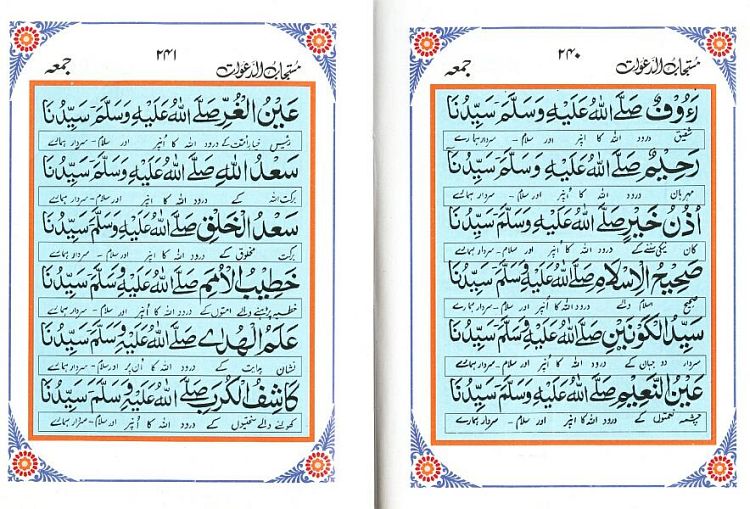 مستجاب الدعوات ۲۴۰ جمعہ
رَءُوْفٌ صَلَّى اللهُ عَلَيْهِ وَسَلَّمَ سَيِّدُنَا
شفیق درود اللہ کا اُنپر اور سلام - سردار ہمارے
رَحِيْمٌ صَلَّى اللهُ عَلَيْهِ وَسَلَّمَ سَيِّدُنَا
مہربان درود اللہ کا اُنپر اور سلام - سردار ہمارے
اُذُنُ خَيْرٍ صَلَّى اللهُ عَلَيْهِ وَسَلَّمَ سَيِّدُنَا
کان نیکی سننے کے درود اللہ کا اُنپر اور سلام - سردار ہمارے
صَحِيْحُ الْاِسْلَامِ صَلَّى اللهُ عَلَيْهِ وَسَلَّمَ سَيِّدُنَا
صحیح اسلام والے درود اللہ کا اُنپر اور سلام - سردار ہمارے
سَيِّدُ الْكَوْنَيْنِ صَلَّى اللهُ عَلَيْهِ وَسَلَّمَ سَيِّدُنَا
سردار دو جہان کے درود اللہ کا اُنپر اور سلام - سردار ہمارے
عَيْنُ النَّعِيْمِ صَلَّى اللهُ عَلَيْهِ وَسَلَّمَ سَيِّدُنَا
چشمہ نعمتوں کے درود اللہ کا اُنپر اور سلام - سردار ہمارے
مستجاب الدعوات ۲۴۱ جمعہ
عَيْنُ الْغُرِّ صَلَّى اللهُ عَلَيْهِ وَسَلَّمَ سَيِّدُنَا
رئیس درود اللہ کا اُنپر اور سلام - سردار ہمارے
سَعْدُ اللهِ صَلَّى اللهُ عَلَيْهِ وَسَلَّمَ سَيِّدُنَا
برکت اللہ کے درود اللہ کا اُنپر اور سلام - سردار ہمارے
سَعْدُ الْخَلْقِ صَلَّى اللهُ عَلَيْهِ وَسَلَّمَ سَيِّدُنَا
برکت مخلوق کے درود اللہ کا اُنپر اور سلام - سردار ہمارے
خَطِيْبُ الْاُمَمِ صَلَّى اللهُ عَلَيْهِ وَسَلَّمَ سَيِّدُنَا
خطبہ پڑھنے والے امتوں کے درود اللہ کا اُنپر اور سلام - سردار ہمارے
عَلَمُ الْهُدٰى صَلَّى اللهُ عَلَيْهِ وَسَلَّمَ سَيِّدُنَا
نشان ہدایت کے درود اللہ کا اُن پر اور سلام - سردار ہمارے
كَاشِفُ الْكُرَبِ صَلَّى اللهُ عَلَيْهِ وَسَلَّمَ سَيِّدُنَا
کھولنے والے سختیوں کے درود اللہ کا اُنپر اور سلام - سردار ہمارے